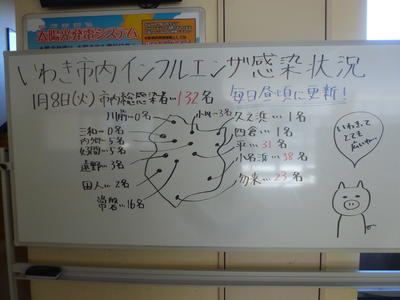 太陽光発電システム
いわき市内インフルエンザ感染状況
1月8日(火) 市内総感染者…132名
毎日昼頃に更新!
川前…0名
小川…3名
久之浜…1名
三和…0名
四倉…1名
内郷…5名
平…31名
好間…5名
小名浜…38名
遠野…3名
勿来…23名
田人…2名
常磐…16名
いわきって
とても
広いヤ…